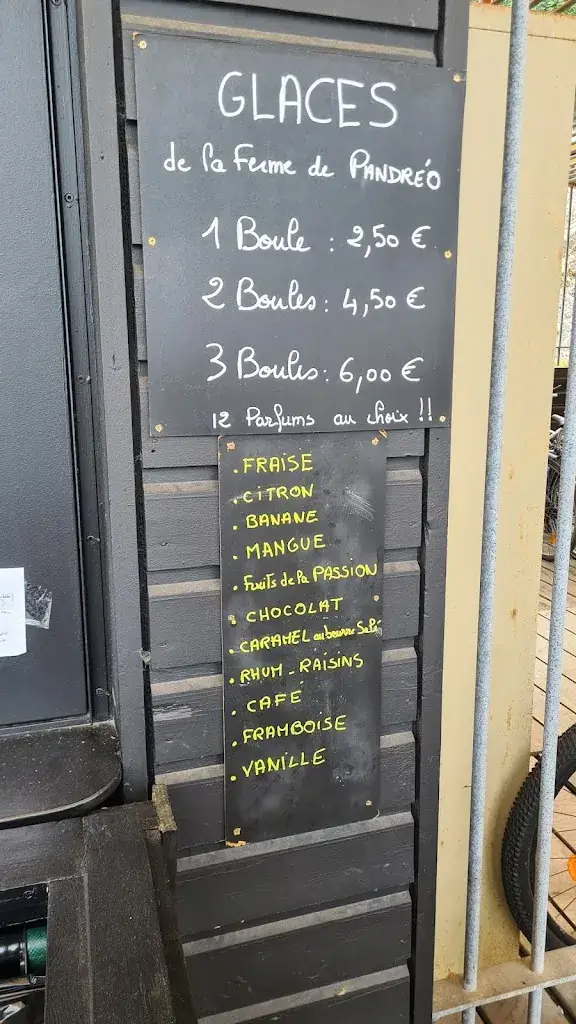 GLACES
de la Ferme de PANDRÉO
1 Boule : 2,50 €
2 Boules : 4,50 €
3 Boules : 6,00 €
12 Parfums au choix !!
. FRAISE
. CITRON
. BANANE
. MANGUE
. Fruits de la PASSION
. CHOCOLAT
. CARAMEL au beurre Salé
. RHUM - RAISINS
. CAFÉ
. FRAMBOISE
. VANILLE